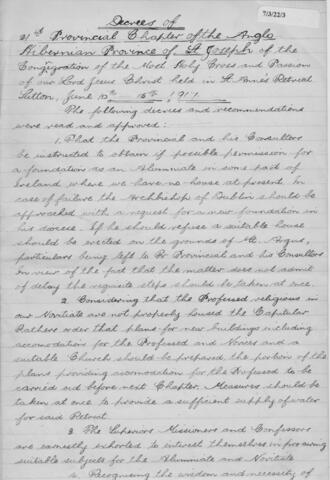 7/3/22/3
Decrees of
21st Provincial Chapter of the Anglo
Hibernian Province of St Joseph of the
Congregation of the Most Holy Cross and Passion
of our Lord Jesus Christ held in St Anne's Retreat
Sutton, June 10th 15th, 1911.
The following decrees and recommendations
were read and approved:
1. That the Provincial and his Consultors
be instructed to obtain if possible permission for
a foundation as an Alumnate in some part of
Ireland where we have no house at present. In
case of failure the Archbishop of Dublin should be
approached with a request for a new foundation in
his diocese. If he should refuse a suitable house
should be erected on the grounds of Mt. Argus,
particulars being left to Fr Provincial and his Consultors
In view of the fact that the matter does not admit
of delay the requisite steps should be taken at once.
2. Considering that the Professed religious in
our Novitiate are not properly housed the Capitular
Fathers order that plans for new buildings including
accomodation for the Professed and Novices and a
suitable Church should be prepared, the portion of the
plans providing accomodation for the Professed to be
carried out before next Chapter. Measures should be
taken at once to provide a sufficient supply of water
for said Retreat.
3. The Superiors Missioners and Confessors
are earnestly exhorted to interest themselves in procuring
suitable subjects for the Alumnate and Novitiate
4. Recognising the wisdom and necessity of